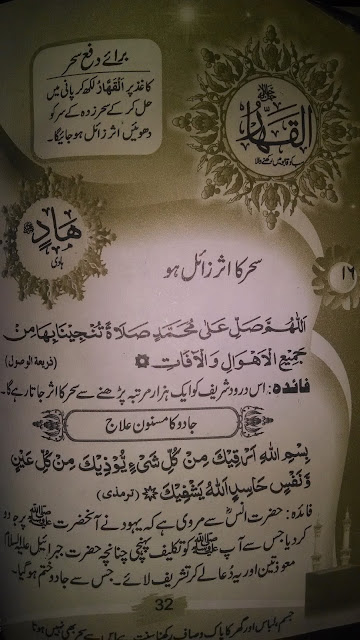 برائے دفع سحر
کاغذ پر اَلْقَهَّارُ لکھ کر پانی میں
حل کر کے سحر زدہ کے سر کو
دھوئیں اثر زائل ہو جائیگا۔
جل جلالہ
القهار
سب کو قابو میں رکھنے والا
هَادٍ
ہادی
۱۶
سحر کا اثر زائل ہو
اَللّٰهُمَّ صَلِّ عَلٰی مُحَمَّدٍ صَلَاةً تُنْجِیْنَا بِهَا مِنْ
جَمِیْعِ الْاَهْوَالِ وَالْاٰفَاتِ (ذریعۃ الوصول)
فائدہ: اس درود شریف کو ایک ہزار مرتبہ پڑھنے سے سحر کا اثر جاتا رہے گا۔
جادو کا مسنون علاج
بِسْمِ اللّٰهِ اَرْقِیْكَ مِنْ كُلِّ شَیْءٍ یُّوْذِیْكَ مِنْ كُلِّ عَیْنٍ
وَّنَفْسٍ حَاسِدٍ اَللّٰهُ یَشْفِیْكَ (ترمذی)
فائدہ: حضرت انسؓ سے مروی ہے کہ یہود نے آنحضرت ﷺ پر جادو
کر دیا جس سے آپ ﷺ کو تکلیف پہنچی چنانچہ حضرت جبرائیل علیہ السلام
معوذتین اور یہ دُعا لے کر تشریف لائے۔ جس سے جادو ختم ہو گیا۔
32
جسم و لباس اور گھر کا پاک و صاف رکھنا سنت ہے اس سے سحر بھی نہیں ہوتا